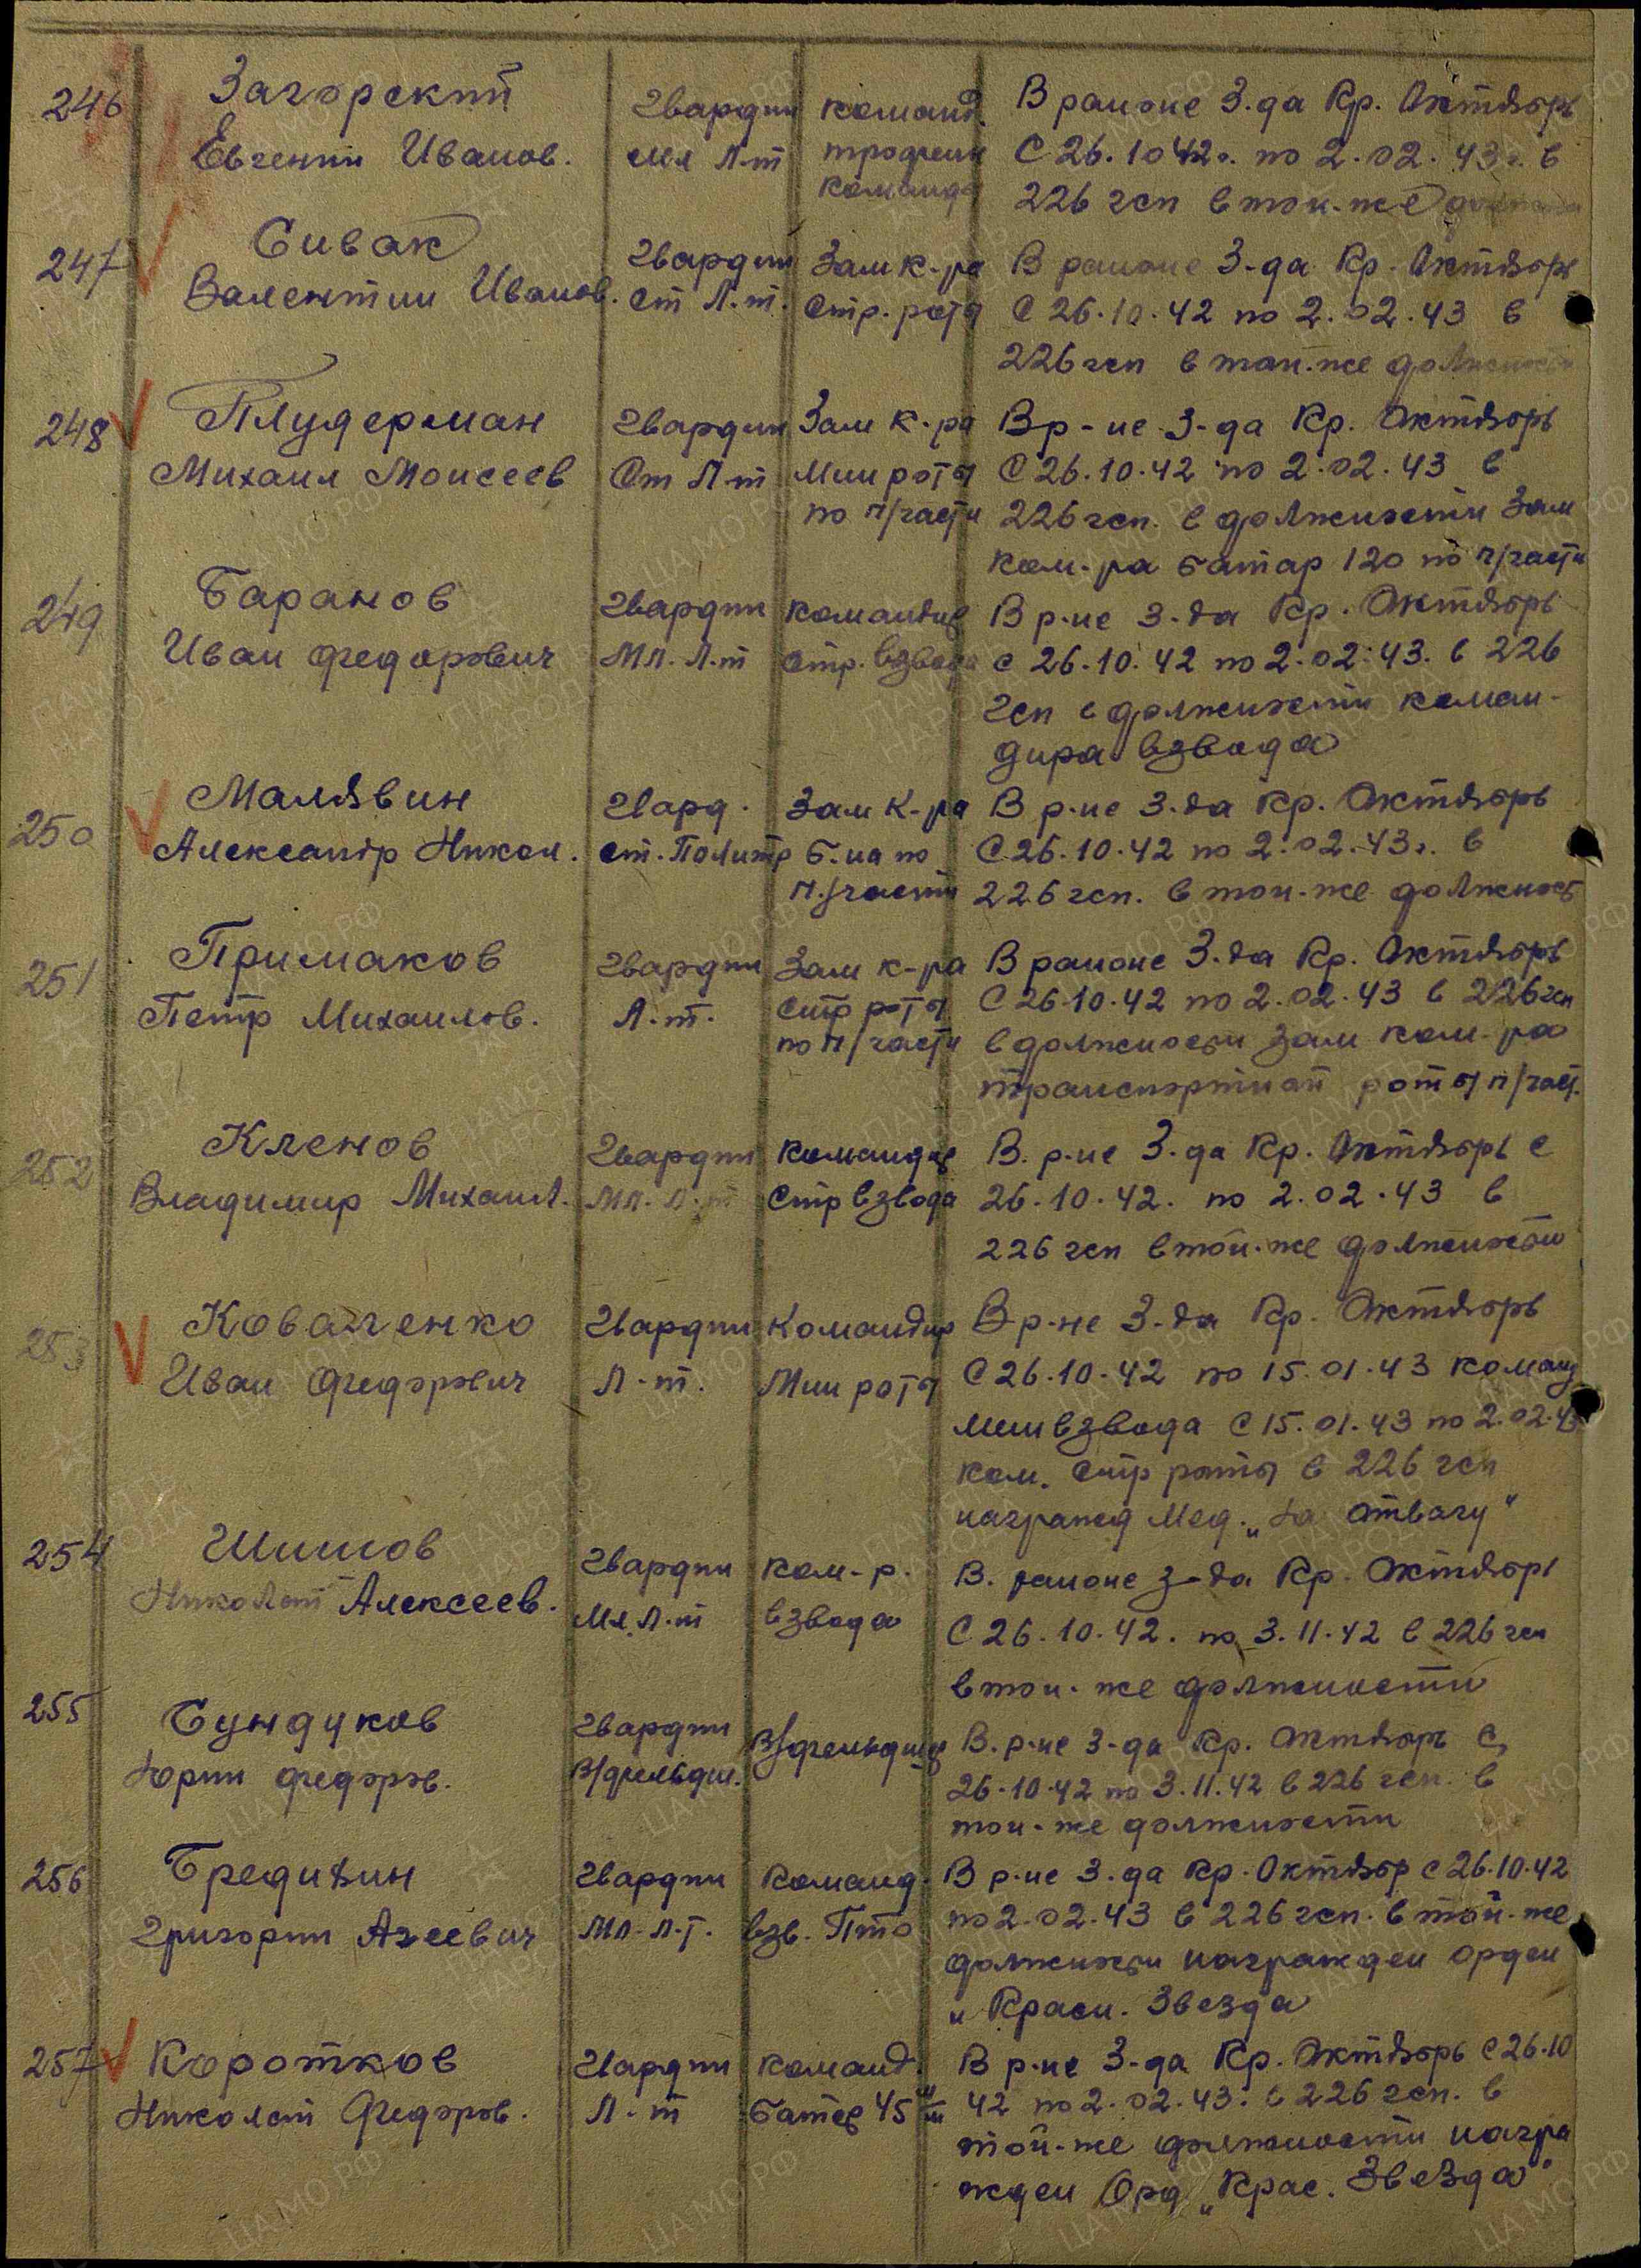 246
Загорский
Евгений Иванов.
Гвардии
Мл Л-т
команд.
трофейн
команды
В районе З-да Кр. Октябрь
С 26.10 42г. по 2.02.43г. в
226 гсп в той-же
247
Сивак
Валентин Иванов.
Гвардии
Ст Л-т.
Зам к-ра
Стр. роты
В районе З-да Кр. Октябрь
С 26.10.42 по 2.02.43 в
226 гсп в той-же должности
248
Плудерман
Михаил Моисеев
Гвардии
Ст Л-т
Зам к-ра
Мин роты
по п/части
В р-не З-да Кр. Октябрь
С 26.10.42 по 2.02.43 в
226 гсп. в должности Зам
ком-ра батар 120 по п/части
249
Баранов
Иван Федорович
Гвардии
Мл. Л-т
командир
стр. взвода
В р-не З-да Кр. Октябрь
с 26.10.42 по 2.02.43. в 226
гсп в должности коман-
дира взвода
250
Малявин
Александр Никол.
Гвард.
ст. Политр
Зам к-ра
б-на по
п/части
В р-не З-да Кр. Октябрь
С 26.10.42 по 2.02.43г. в
226 гсп. в той-же должност
251
Примаков
Петр Михайлов.
Гвардии
Л-т.
Зам к-ра
стр роты
по п/части
В районе З-да Кр. Октябрь
С 26.10.42 по 2.02.43 в 226 гсп
в должности зам ком-ра
транспортной роты п/част.
252
Кленов
Владимир Михайл.
Гвардии
Мл. Л-т
командир
Стр взвода
В. р-не З-да Кр. Октябрь с
26.10.42. по 2.02.43 в
226 гсп в той-же должности
253
Коваленко
Иван Федорович
Гвардии
Л-т.
Командир
Мин роты
В р-не З-да Кр. Октябрь
С 26.10.42 по 15.01.43 команд
мин взвода С 15.01.43 по 2.02.43
ком. стр роты в 226 гсп
награжд Мед. „За отвагу"
254
Шишов
Николай Алексеев.
Гвардии
Мл. Л-т
ком-р.
взвода
В. районе З-да Кр. Октябрь
С 26.10.42. по 3.11.42 в 226 гсп
в той-же должности
255
Сундуков
Юрий Федоров.
Гвардии
В/фельдш.
В/фельдшер
В. р-не З-да Кр. Октябрь С
26.10.42 по 3.11.42 в 226 гсп. в
той-же должности
256
Бредихин
Григорий Агеевич
Гвардии
Мл. Л-т.
команд.
взв. Пто
В р-не З-да Кр. Октябр с 26.10.42
по 2.02.43 в 226 гсп. в той-же
должности награжден орден
„Красн. Звезда
257
Коротков
Николай Федоров.
Гвардии
Л-т
команд.
батар 45 м/м
В р-не З-да Кр. Октябрь С 26.10
42 по 2.02.43. в 226 гсп. в
той-же должности награ
жден Орд „Крас. Звезда"